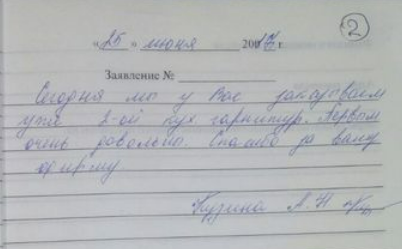 ②
«25» июня 2017 г.
Заявление №
Сегодня мы у Вас заказываем
уже 2-ой кух. гарнитур. Первым
очень довольны. Спасибо за вашу
фирму
Кузина А. Н